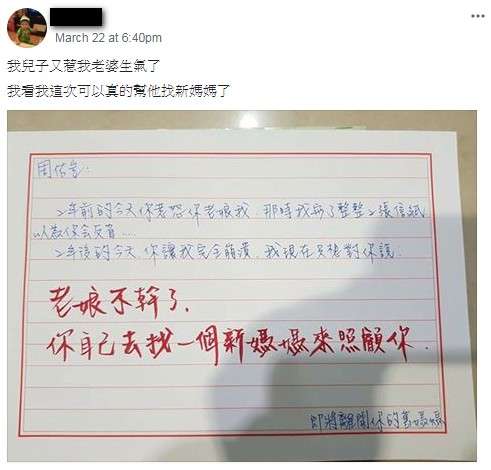 March 22 at 6:40pm
我兒子又惹我老婆生氣了
我看我這次可以真的幫他找新媽媽了
周佑
2年前的今天你惹怒你老娘我,那時我寫了整整2張信紙
以為你會反省...
2年後的今天,你讓我完全崩潰,我現在只想對你說:
老娘不幹了,
你自己去找一個新媽媽來照顧你.
即將離開你的舊媽媽